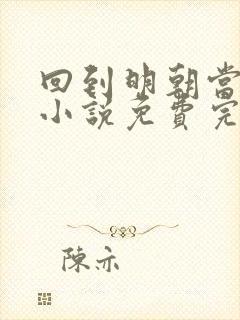 回到明朝當
小說免費完
陳亦